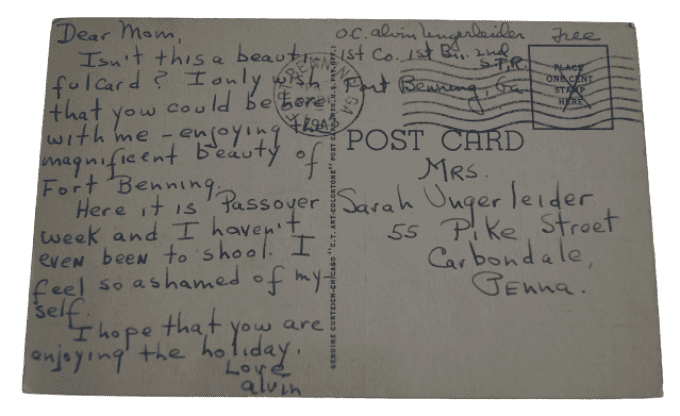 Dear Mom,
Isn't this a beauti
ful card? I only wish
that you could be here
with me - enjoying the
magnificent beauty of
Fort Benning.
Here it is Passover
week and I haven't
even been to shool. I
feel so ashamed of my-
self.
I hope that you are
enjoying the holiday.
Love
alvin
GENUINE CURTEICH-CHICAGO "C.T. ART-COLORTONE" POST CARD
O.C. alvin Ungerleider
1st Co. 1st Bn. 2nd
S.T.R.
Fort Benning, Ga.
Free
FORT BENNING, GA.
PLACE
ONE CENT
STAMP
HERE
POST CARD
Mrs.
Sarah Ungerleider
55 Pike Street
Carbondale,
Penna.